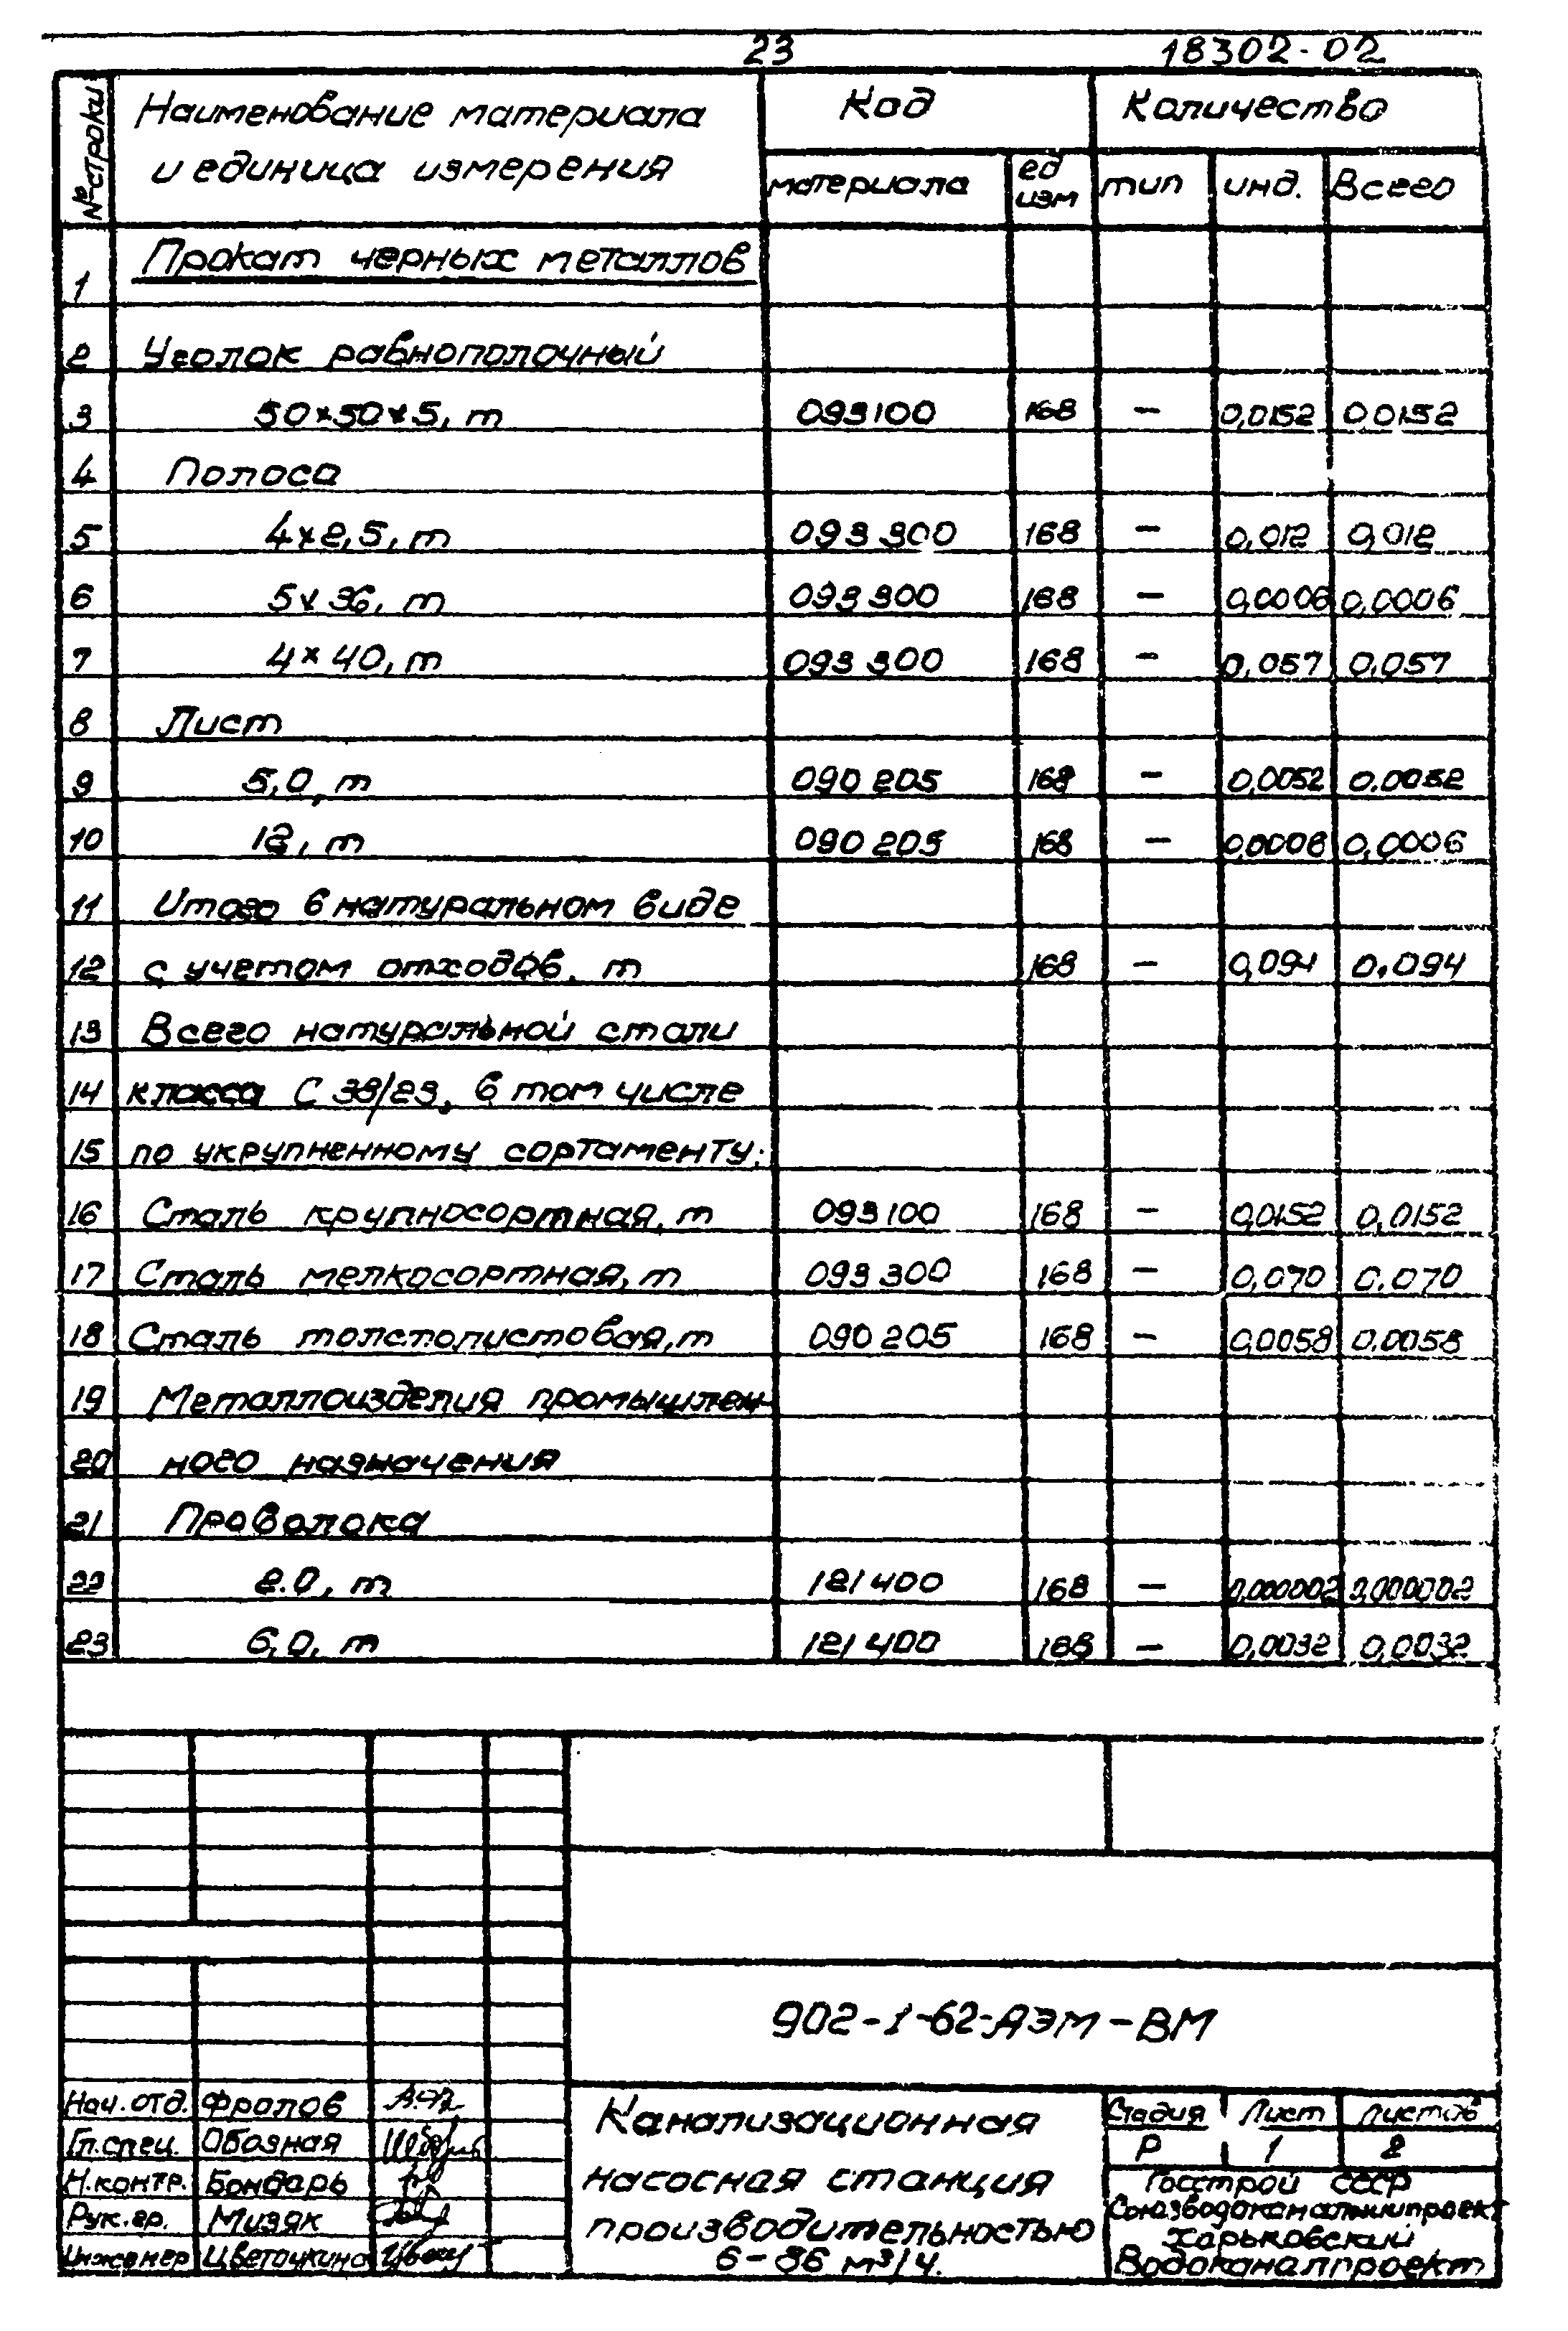 23 18302-02
№ строки Наименование материала и единица измерения Код Количество
материала ед изм тип инд. Всего
1 Прокат черных металлов
2 Уголок равнополочный
3 50×50×5, т 093100 168 – 0,0152 0,0152
4 Полоса
5 4×2,5, т 093300 168 – 0,012 0,012
6 5×36, т 093300 168 – 0,0006 0,0006
7 4×40, т 093300 168 – 0,057 0,057
8 Лист
9 5,0, т 090205 168 – 0,0052 0,0052
10 12, т 090205 168 – 0,0006 0,0006
11 Итого в натуральном виде
12 с учетом отходов, т 168 – 0,094 0,094
13 Всего натуральной стали
14 класса С 38/23, в том числе
15 по укрупненному сортаменту:
16 Сталь крупносортная, т 093100 168 – 0,0152 0,0152
17 Сталь мелкосортная, т 093300 168 – 0,070 0,070
18 Сталь толстолистовая, т 090205 168 – 0,0058 0,0058
19 Металлоизделия промышлен-
20 ного назначения
21 Проволока
22 2.0, т 121400 168 – 0,000002 0,000002
23 6,0, т 121400 168 – 0,0032 0,0032
902-1-62-АЭМ-ВМ
Нач. отд. Фролов
Гл. спец. Обозная
Н. контр. Бондарь
Рук. гр. Мизяк
Инженер Цветочкина
Канализационная
насосная станция
производительностью
6-36 м³/ч.
Стадия Лист Листов
Р 1 2
Госстрой СССР
Союзводоканалниипроект
Харьковский
Водоканалпроект